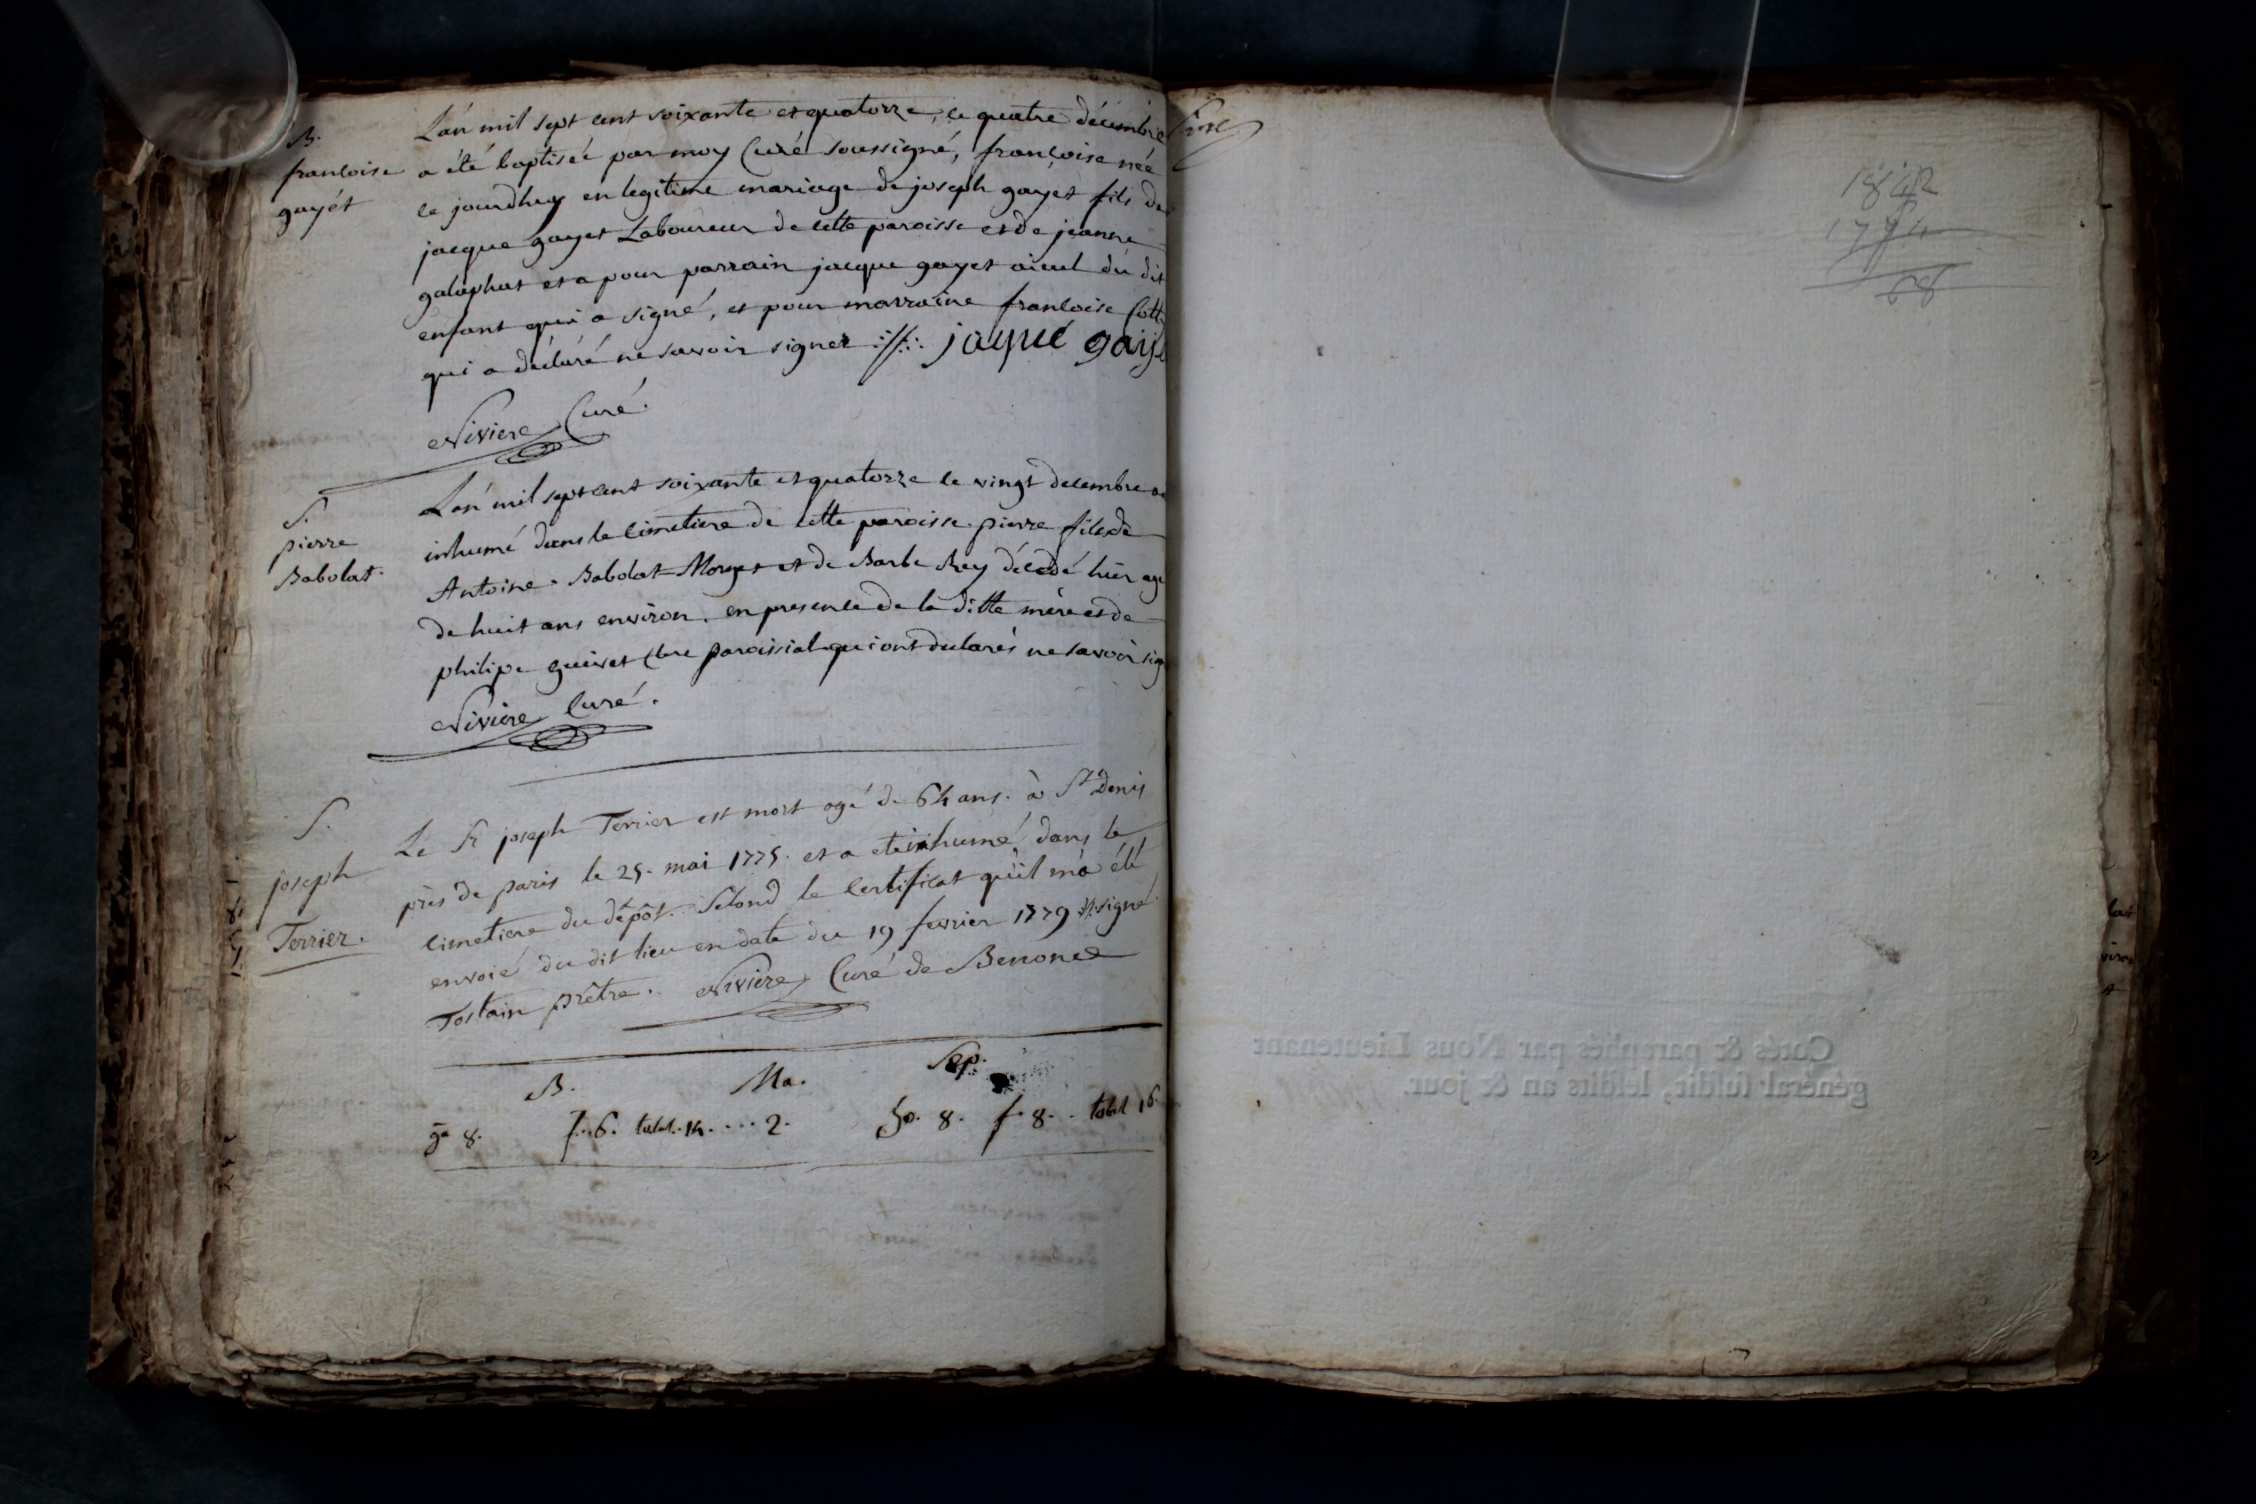 B.
françoise
gayét
L'an mil sept cent soixante et quatorze, le quatre décembre
a été baptisée par moy Curé soussigné, françoise née
le jourdhuy en legitime mariage de joseph gayet fils de
jacque gayet Laboureur de cette paroisse et de jeanne
galaphat et a pour parrain jacque gayet aieul du dit
enfant qui a signé, et pour marraine francoise
qui a déclaré ne savoir signer jaqué
Niviere Curé.
S.
pierre
Babolat.
L'an mil sept cent soixante et quatorze le vingt decembre
inhumé dans le cimetiere de cette paroisse pierre fils de
Antoine Babolat et de Barbe Rey décédé hier
de huit ans environ. en presence de la ditte mère et de
philipe guivet Clerc paroissial qui ont declarés ne savoir
Niviere Curé.
S.
joseph
Terrier.
Le Sr joseph Terrier est mort agé de 64 ans. à St Denis
près de paris le 25. mai 1775. et a eté inhumé dans le
cimetiere du dépôt. Selond le Certificat qu'il m'a été
envoié du dit lieu en date du 19 fevrier 1779 signé
Tostain prêtre. Niviere Curé de Benonce
B. Ma. Sep.
8. f..6. total..14....2. 8. f. 8.. total 16
1842
1774
68
Cotés & paraphés par Nous Lieutenant
général susdit, lesdits an & jour.